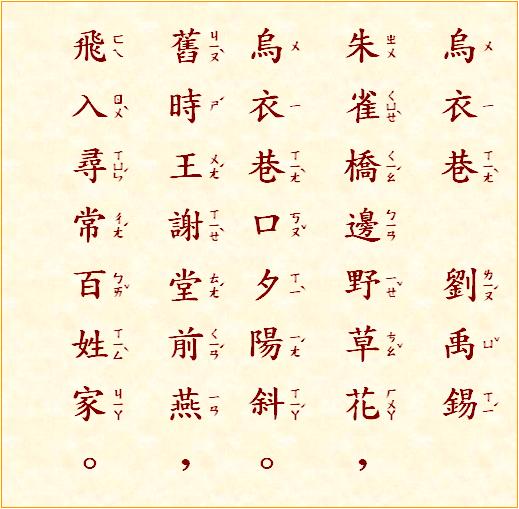 烏ㄨ衣ㄧ巷ㄒㄧㄤˋ 劉ㄌㄧㄡˊ禹ㄩˇ錫ㄒㄧˊ
朱ㄓㄨ雀ㄑㄩㄝˋ橋ㄑㄧㄠˊ邊ㄅㄧㄢ野ㄧㄝˇ草ㄘㄠˇ花ㄏㄨㄚ，
烏ㄨ衣ㄧ巷ㄒㄧㄤˋ口ㄎㄡˇ夕ㄒㄧˋ陽ㄧㄤˊ斜ㄒㄧㄚˊ。
舊ㄐㄧㄡˋ時ㄕˊ王ㄨㄤˊ謝ㄒㄧㄝˋ堂ㄊㄤˊ前ㄑㄧㄢˊ燕ㄧㄢ，
飛ㄈㄟ入ㄖㄨˋ尋ㄒㄩㄣˊ常ㄔㄤˊ百ㄅㄞˇ姓ㄒㄧㄥˋ家ㄐㄧㄚ。